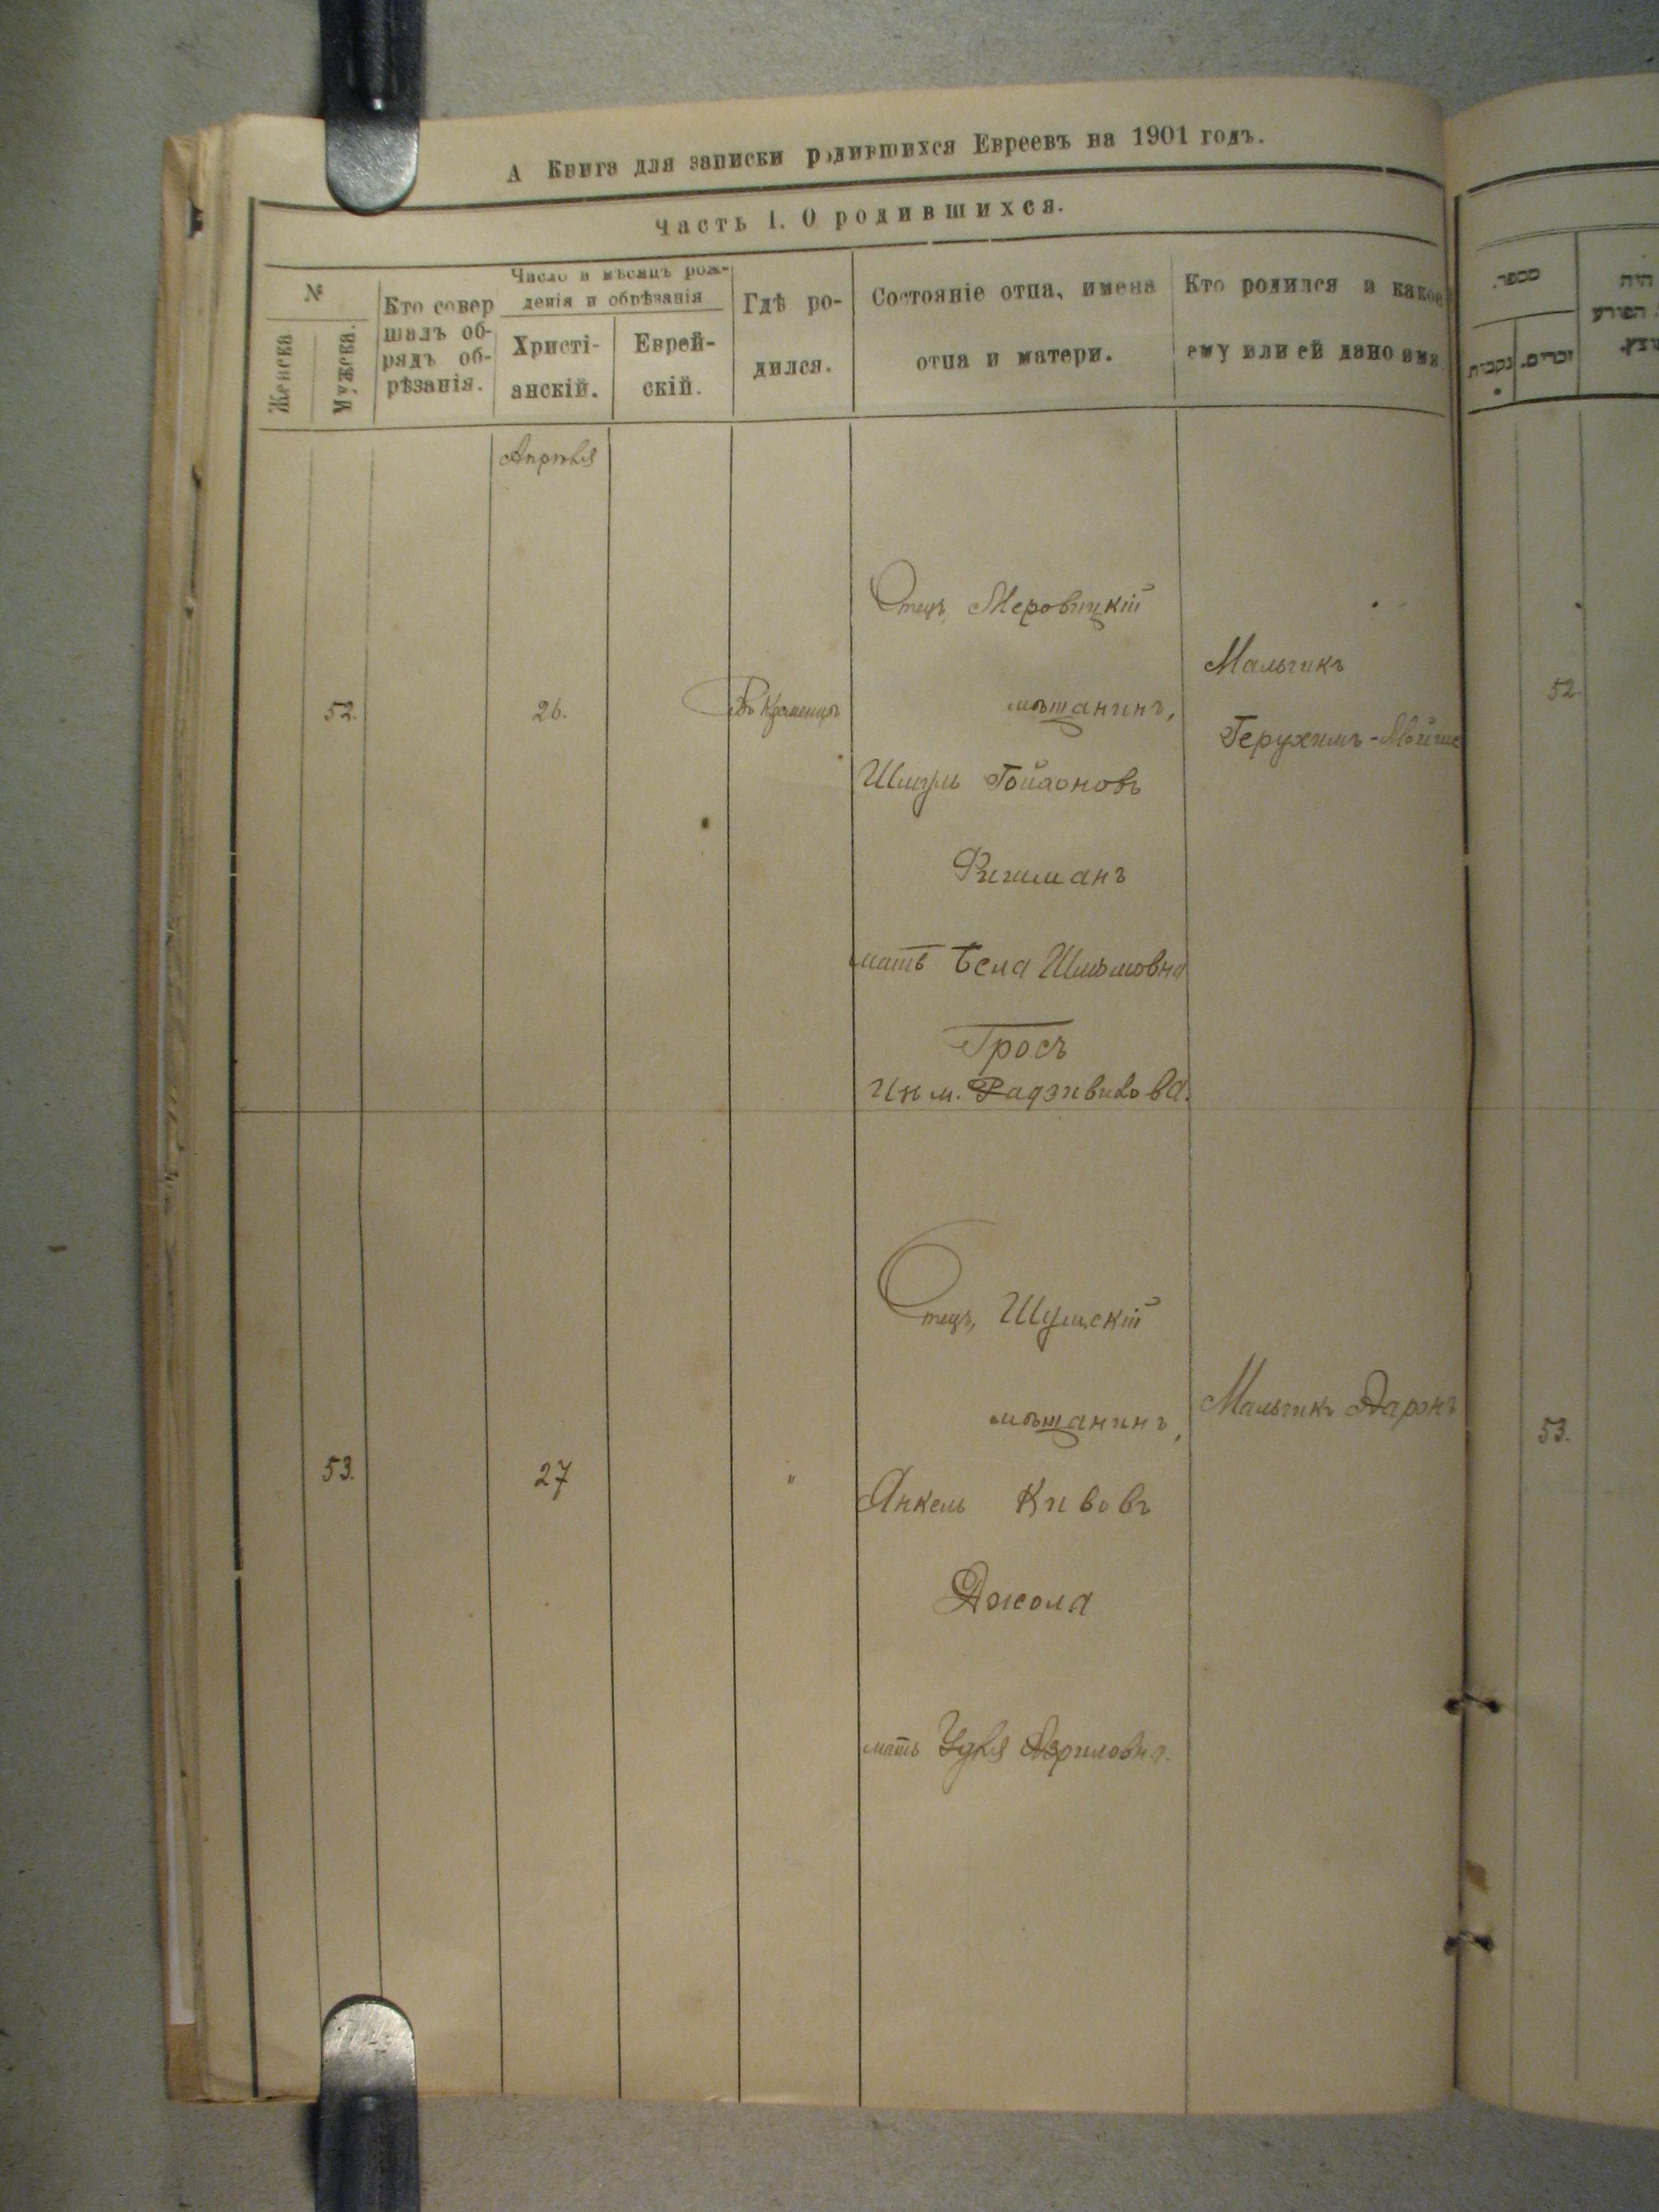 А Книга для записки родившихся Евреевъ на 1901 годъ.
Часть I. О родившихся.
№
Женска
Мужска.
Кто совер
шалъ об-
рядъ об-
рѣзанія.
Число и мѣсяцъ рож-
денія и обрѣзанія
Христі-
анскій.
Еврей-
скій.
Гдѣ ро-
дился.
Состояніе отца, имена
отца и матери.
Кто родился и какое
ему или ей дано имя
Апрѣля
52.
26.
Въ Кременцѣ
Отецъ, Меровицкій
мѣщанинъ,
Шмуль
Фишманъ
мать Бела Шлемовна
Гросъ
м. Радзивилова.
Мальчикъ
Герухимъ-Мойше
53.
27
"
Отецъ, Шумскій
мѣщанинъ,
Янкель Кивовъ
мать Удля Азриловна.
Мальчикъ Ааронъ
מספר.
זכרים.
נקבות
52
53.